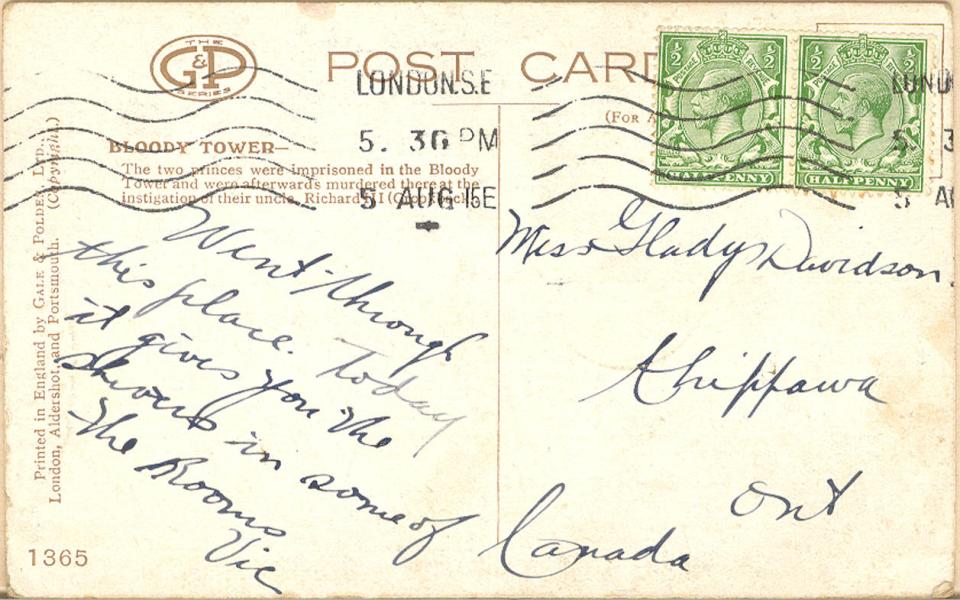 THE
G&P
SERIES
POST CARD
LONDON.S.E
5. 30 PM
5 AUG 15
½ ½
POSTAGE REVENUE
HALFPENNY
½ ½
POSTAGE REVENUE
HALFPENNY
LOND
5. 3
5 A
(FOR A
BLOODY TOWER—
The two princes were imprisoned in the Bloody
Tower and were afterwards murdered there at the
instigation of their uncle, Richard III
Went through
this place. Today
it gives you the
shivers in some of
the Rooms
Vic
Miss Gladys Davidson.
Chippawa
Ont
Canada
Printed in England by GALE & POLDEN, LTD.,
London, Aldershot, and Portsmouth. (Copyright.)
1365